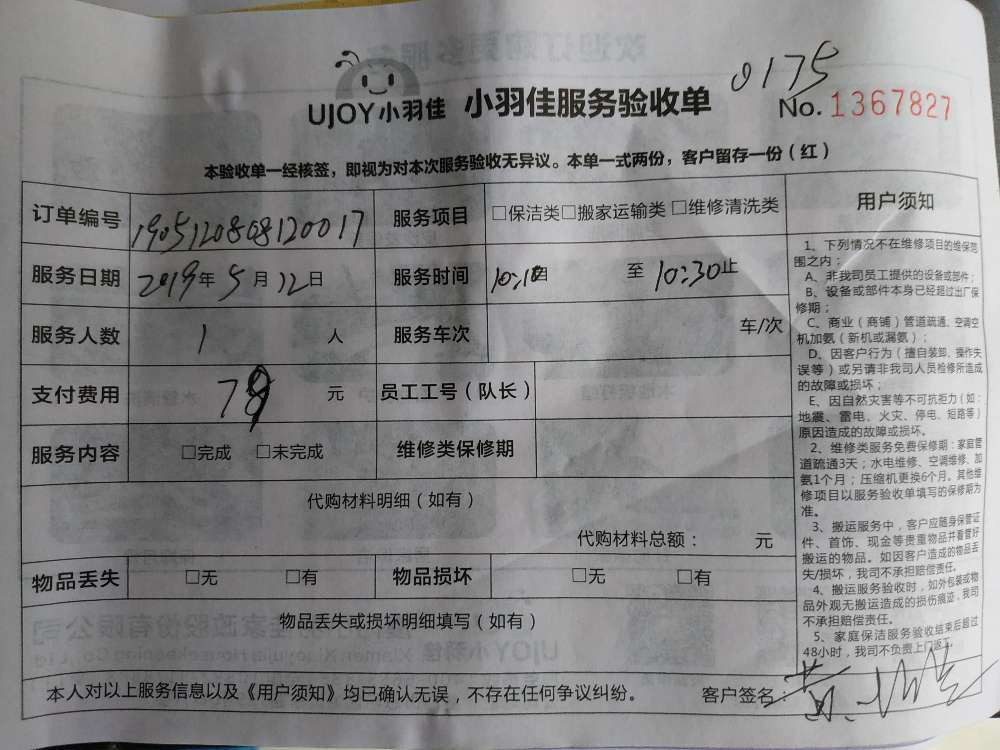 UJOY小羽佳 小羽佳服务验收单
0175
No. 1367827
本验收单一经核签，即视为对本次服务验收无异议。本单一式两份，客户留存一份（红）
订单编号 1905120808120017 服务项目 □保洁类□搬家运输类□维修清洗类
服务日期 2019年5月12日 服务时间 10:10自 至 10:30止
服务人数 1 人 服务车次 车/次
支付费用 79 元 员工工号（队长）
服务内容 □完成 □未完成 维修类保修期
代购材料明细（如有）
代购材料总额： 元
物品丢失 □无 □有 物品损坏 □无 □有
物品丢失或损坏明细填写（如有）
本人对以上服务信息以及《用户须知》均已确认无误，不存在任何争议纠纷。 客户签名：
用户须知
1、下列情况不在维修项目的维保范
围之内；
A、非我司员工提供的设备或部件；
B、设备或部件本身已经超过出厂保
修期；
C、商业（商铺）管道疏通、空调空
机加氨（新机或漏氨）；
D、因客户行为（擅自装卸、操作失
误等）或另请非我司人员检修所造成
的故障或损坏；
E、因自然灾害等不可抗拒力（如：
地震、雷电、火灾、停电、短路等）
原因造成的故障或损坏。
2、维修类服务免费保修期：家庭管
道疏通3天；水电维修、空调维修、加
氨1个月；压缩机更换6个月。其他维
修项目以服务验收单填写的保修期为
准。
3、搬运服务中，客户应随身保管证
件、首饰、现金等贵重物品并看管好
搬运的物品。如因客户造成的物品丢
失/损坏，我司不承担赔偿责任。
4、搬运服务验收时，如外包装或物
品外观无搬运造成的损伤痕迹，我司
不承担赔偿责任。
5、家庭保洁服务验收结束后超过
48小时，我司不负责上门返工。